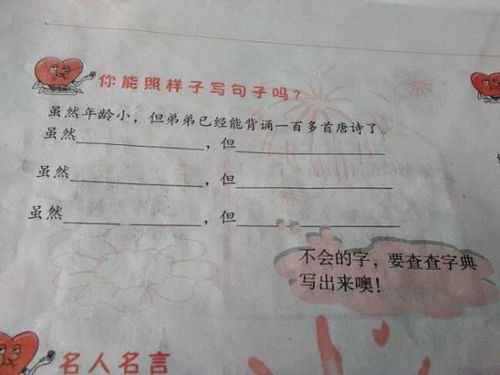 你能照样子写句子吗?
虽然年龄小，但弟弟已经能背诵一百多首唐诗了。
虽然____________，但______________
虽然____________，但______________
虽然____________，但______________
不会的字，要查查字典
写出来噢!
名人名言